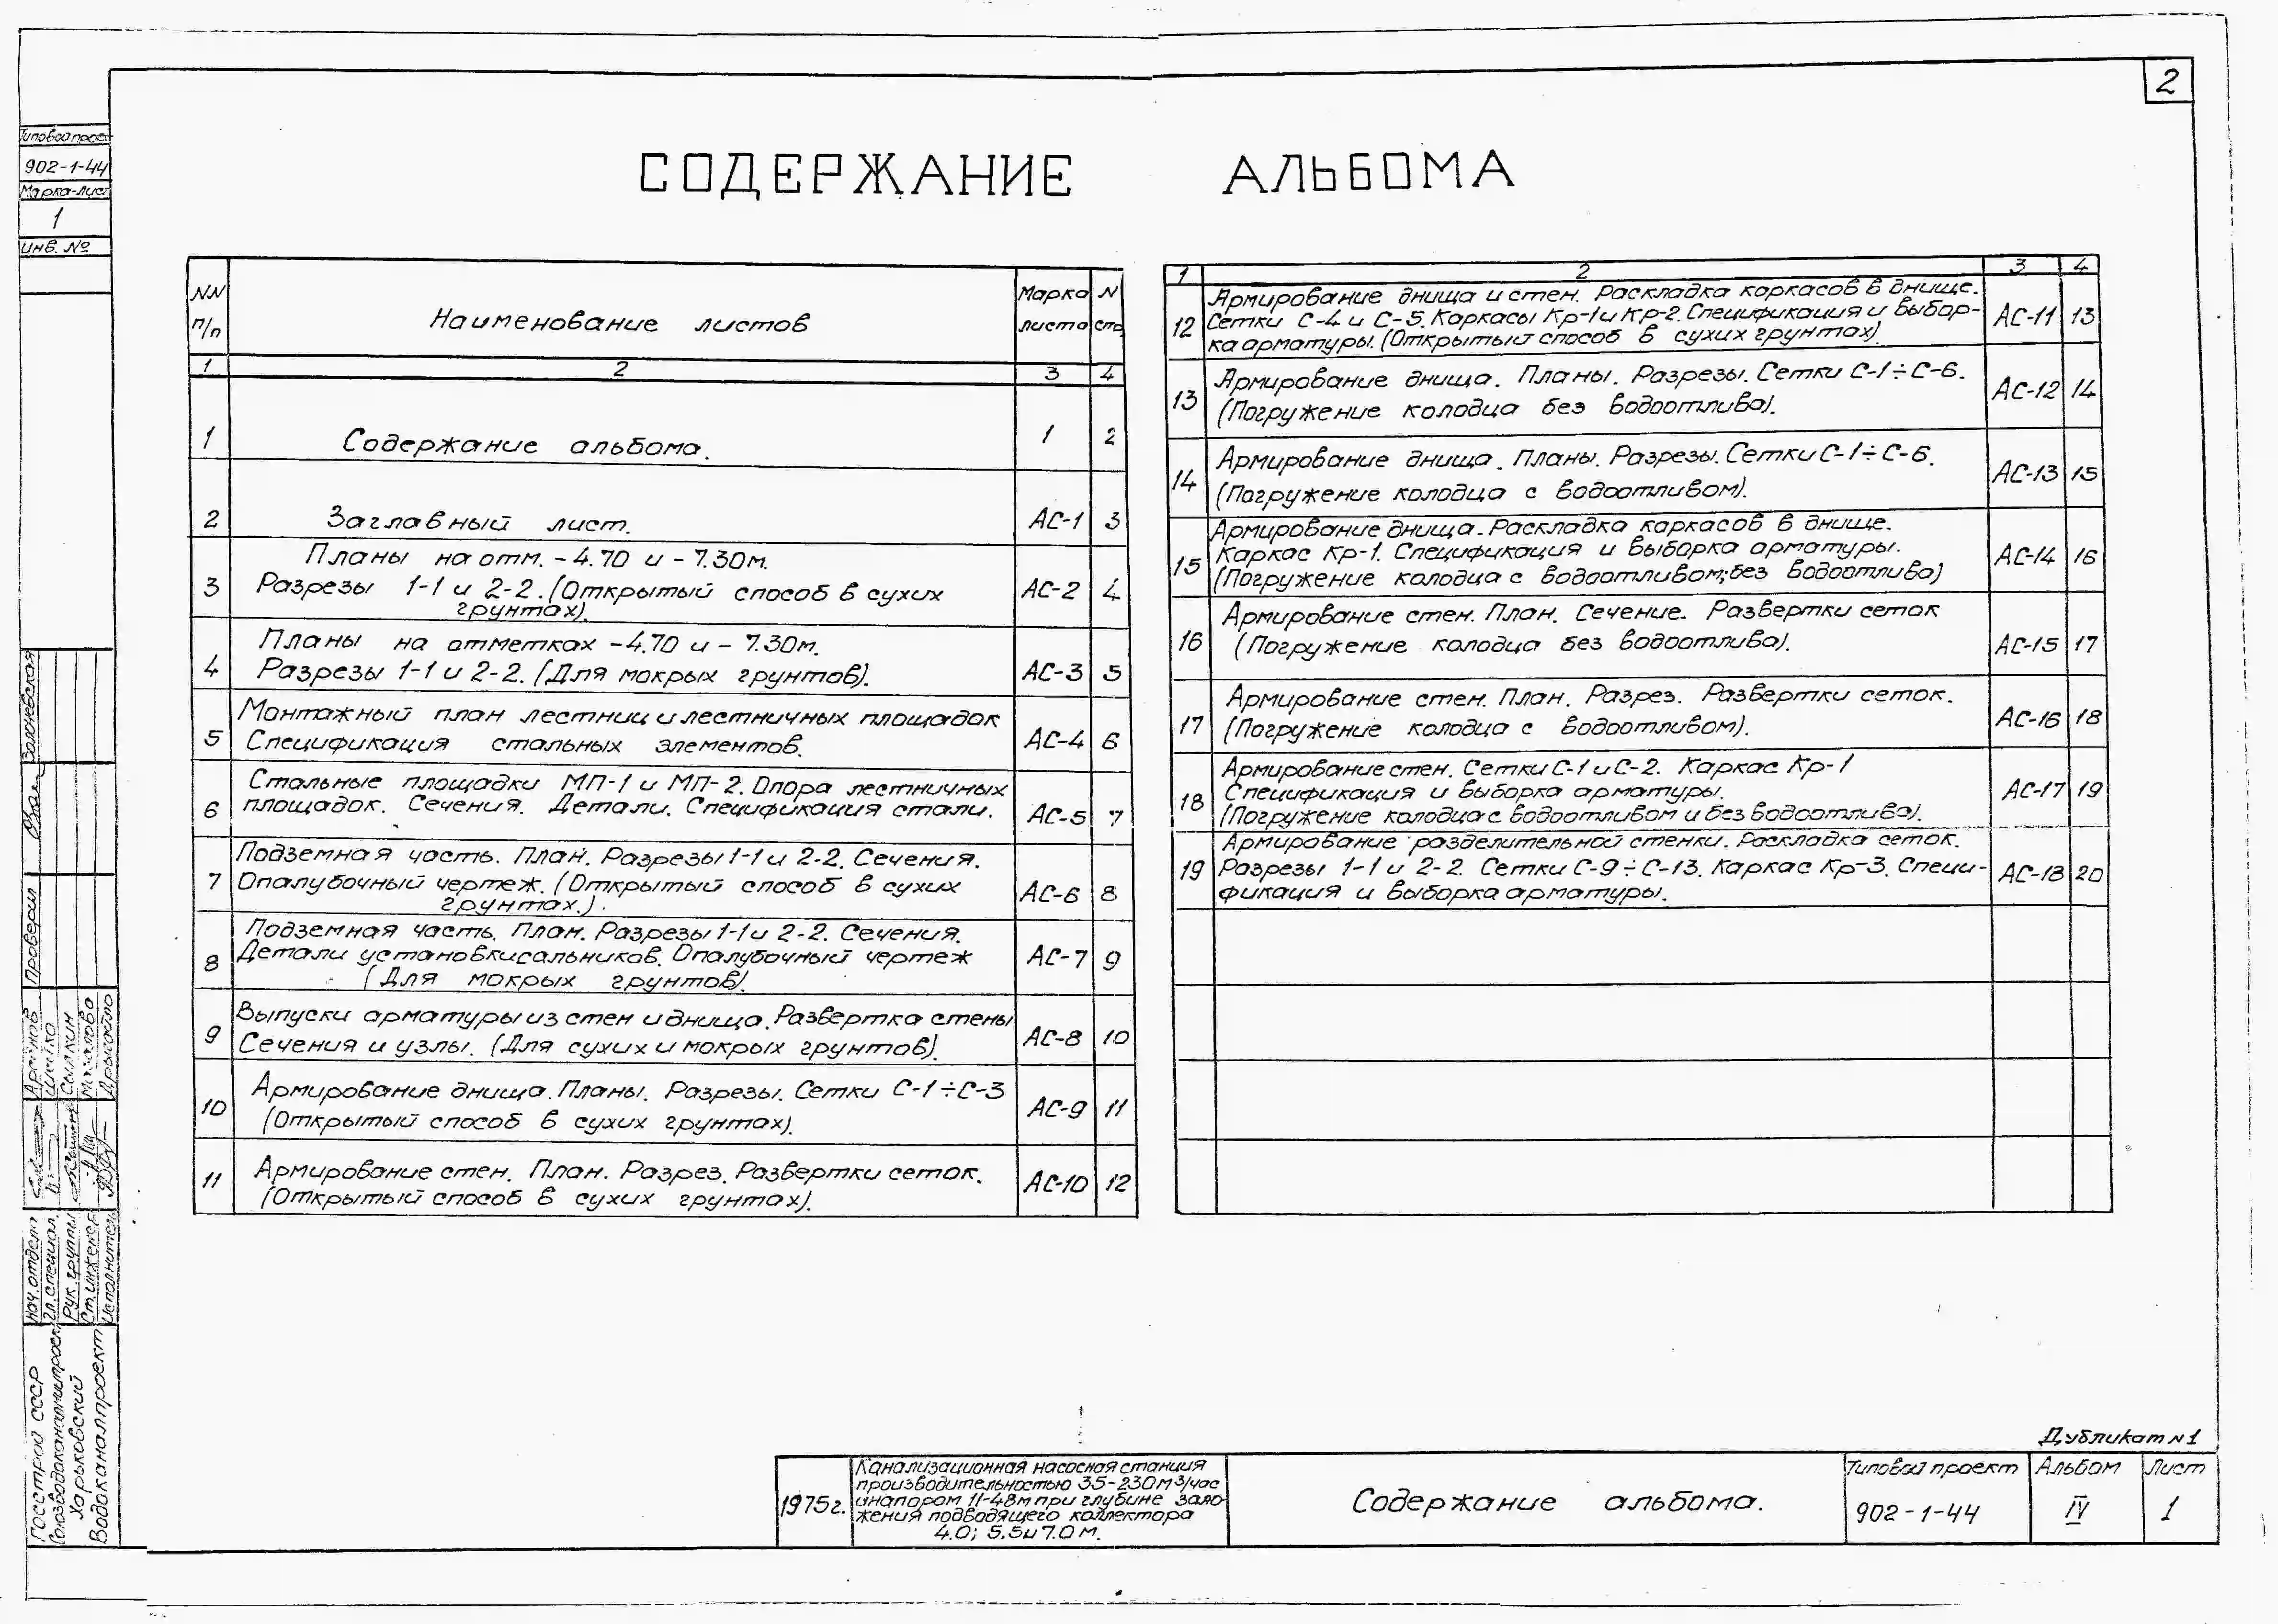 2
Типовой проект
902-1-44
Марка-лист
1
инв. №
СОДЕРЖАНИЕ АЛЬБОМА
NN п/п
Наименование листов
Марка листа
N стр
1 2 3 4
1 Содержание альбома. 1 2
2 Заглавный лист. АС-1 3
Планы на отм. -4.70 и -7.30м.
3 Разрезы 1-1 и 2-2. (Открытый способ в сухих АС-2 4
грунтах).
Планы на отметках -4.70 и -7.30м.
4 Разрезы 1-1 и 2-2. (Для мокрых грунтов). АС-3 5
Монтажный план лестниц и лестничных площадок
5 Спецификация стальных элементов. АС-4 6
Стальные площадки МП-1 и МП-2. Опора лестничных
6 площадок. Сечения. Детали. Спецификация стали. АС-5 7
Подземная часть. План. Разрезы 1-1 и 2-2. Сечения.
7 Опалубочный чертеж. (Открытый способ в сухих АС-6 8
грунтах.).
Подземная часть. План. Разрезы 1-1 и 2-2. Сечения.
8 Детали установки сальников. Опалубочный чертеж АС-7 9
(Для мокрых грунтов).
Выпуски арматуры из стен и днища. Развертка стены
9 Сечения и узлы. (Для сухих и мокрых грунтов). АС-8 10
Армирование днища. Планы. Разрезы. Сетки С-1÷С-3
10 (Открытый способ в сухих грунтах). АС-9 11
Армирование стен. План. Разрез. Развертки сеток.
11 (Открытый способ в сухих грунтах). АС-10 12
1 2 3 4
Армирование днища и стен. Раскладка каркасов в днище.
12 Сетки С-4 и С-5. Каркасы Кр-1 и Кр-2. Спецификация и выбор- АС-11 13
ка арматуры. (Открытый способ в сухих грунтах).
Армирование днища. Планы. Разрезы. Сетки С-1÷С-6.
13 (Погружение колодца без водоотлива). АС-12 14
Армирование днища. Планы. Разрезы. Сетки С-1÷С-6.
14 (Погружение колодца с водоотливом). АС-13 15
Армирование днища. Раскладка каркасов в днище.
15 Каркас Кр-1. Спецификация и выборка арматуры. АС-14 16
(Погружение колодца с водоотливом; без водоотлива)
Армирование стен. План. Сечение. Развертки сеток
16 (Погружение колодца без водоотлива). АС-15 17
Армирование стен. План. Разрез. Развертки сеток.
17 (Погружение колодца с водоотливом). АС-16 18
Армирование стен. Сетки С-1 и С-2. Каркас Кр-1
18 Спецификация и выборка арматуры. АС-17 19
(Погружение колодца с водоотливом и без водоотлива).
Армирование разделительной стенки. Раскладка сеток.
19 Разрезы 1-1 и 2-2. Сетки С-9÷С-13. Каркас Кр-3. Специ- АС-18 20
фикация и выборка арматуры.
Проверил
Сылкин
нач. отдела
гл. специал.
Рук. группы
Ст. инженер
Исполнитель
Госстрой СССР
Союзводоканалниипроект
Харьковский
Водоканалпроект
Дубликат N1
1975г.
Канализационная насосная станция
производительностью 35-230м3/час
и напором 11-48м при глубине зало-
жения подводящего коллектора
4.0; 5.5и 7.0м.
Содержание альбома.
Типовой проект
902-1-44
Альбом
IV
Лист
1